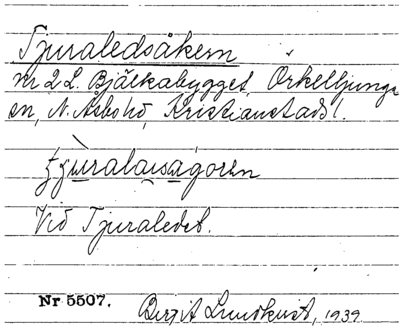 Tjuraledsåkern
nr 2 L. Bjälkabygget, Örkelljunga
sn, N. Åsbo hd, Kristianstads l.
Vid Tjuraledet.
Nr 5507. Birgit Lundkvist, 1939